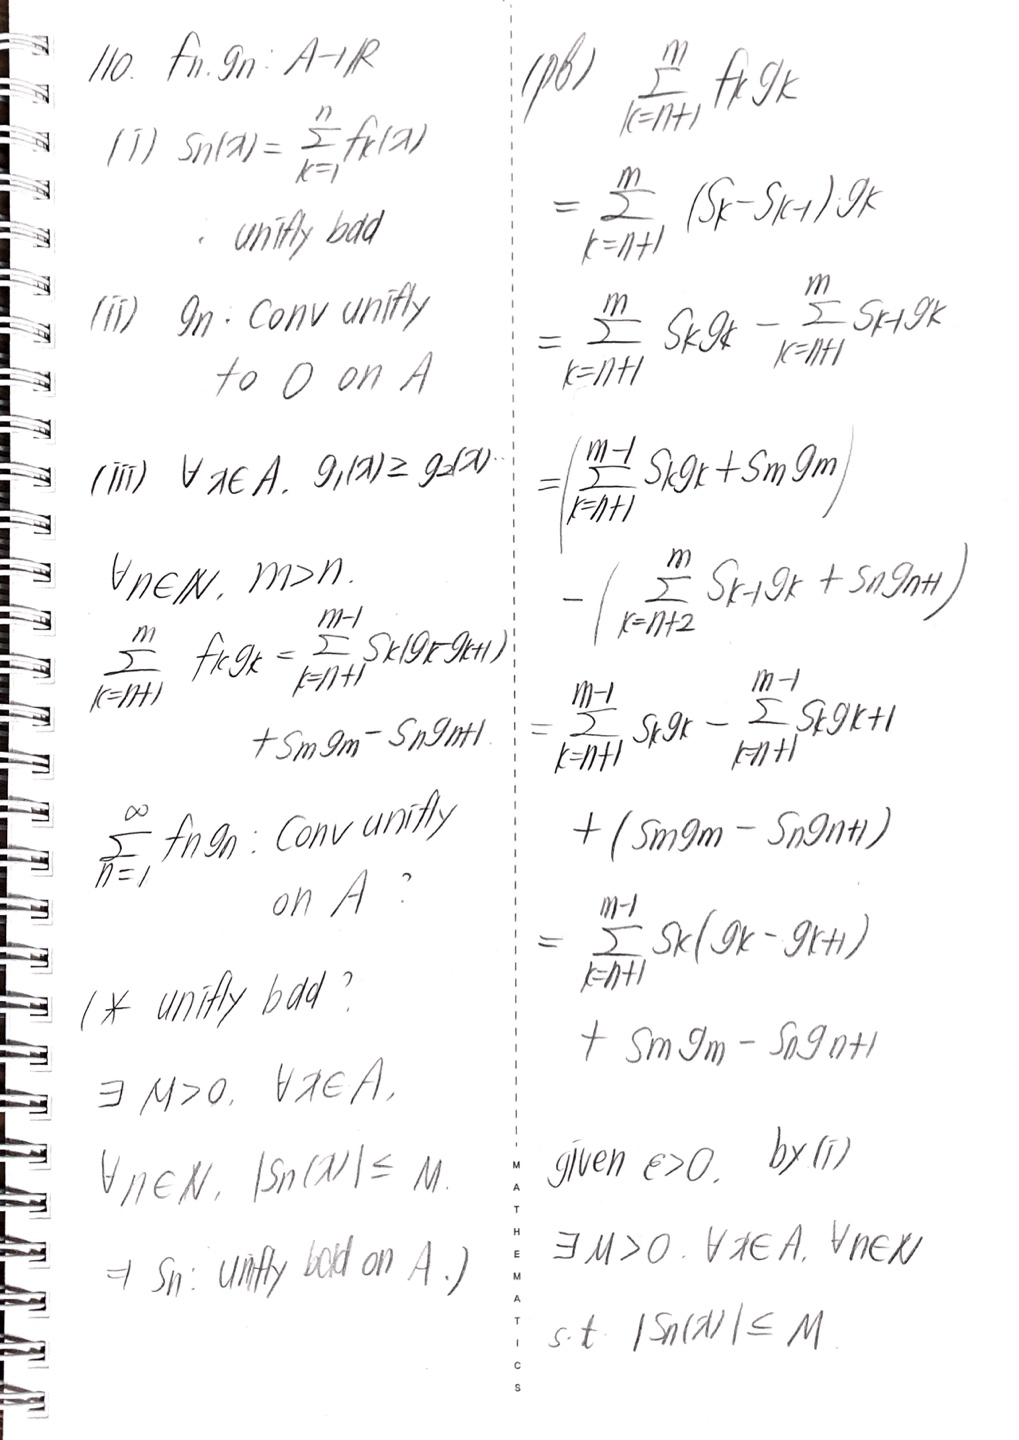 110. fn. gn : A→ℝ
(i) Sn(x) = Σ_{k=1}^{n} fk(x)
: unifly bdd
(ii) gn : Conv unifly
to 0 on A
(iii) ∀x∈A. g₁(x) ≥ g₂(x)...
∀n∈ℕ. m>n.
Σ_{k=n+1}^{m} fkgk = Σ_{k=n+1}^{m-1} Sk(gk-gk+1)
+ Smgm - Sngn+1
Σ_{n=1}^{∞} fngn : Conv unifly
on A ?
(* unifly bdd ?
∃ M>0. ∀x∈A,
∀n∈ℕ. |Sn(x)| ≤ M.
⇒ Sn : unifly bdd on A.)
(pf) Σ_{k=n+1}^{m} fkgk
= Σ_{k=n+1}^{m} (Sk-Sk-1)gk
= Σ_{k=n+1}^{m} Skgk - Σ_{k=n+1}^{m} Sk-1gk
= (Σ_{k=n+1}^{m-1} Skgk + Smgm)
- (Σ_{k=n+2}^{m} Sk-1gk + Sngn+1)
= Σ_{k=n+1}^{m-1} Skgk - Σ_{k=n+1}^{m-1} Skgk+1
+ (Smgm - Sngn+1)
= Σ_{k=n+1}^{m-1} Sk(gk - gk+1)
+ Smgm - Sngn+1
given ε>0. by (i)
∃M>0. ∀x∈A. ∀n∈ℕ
s.t. |Sn(x)| ≤ M.
MATHEMATICS